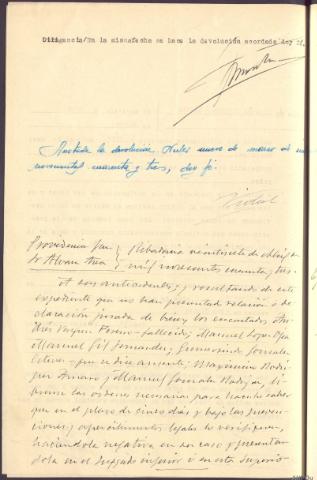 Diligencia/En la misma fecha se hace la devolución acordada doy fé.
Recibida la devolución. Nules nueve de marzo de mil
novecientos cuarenta y tres, doy fé.
Vidal
Providencia Juez
Ribadavia veintisiete de
mil novecientos cuarenta y tres.
A sus antecedentes; y resultando de este
expediente que no han presentado relación o de-
claración jurada de bienes los encartados
Manuel Lopez
Manuel Gil Fernandez, Gumersindo Gonzalez
Esteves - que se dice ausente; Maximino Rodri-
guez Amaro y Manuel Gonzalez Rodriguez, li-
brense las ordenes necesarias para hacerles saber
que en el plazo de cinco dias y bajo las preven-
ciones y apercibimientos legales lo verifiquen,
haciendola negativa en su caso y presentan-
dola en el Juzgado inferior o en esta Superio-